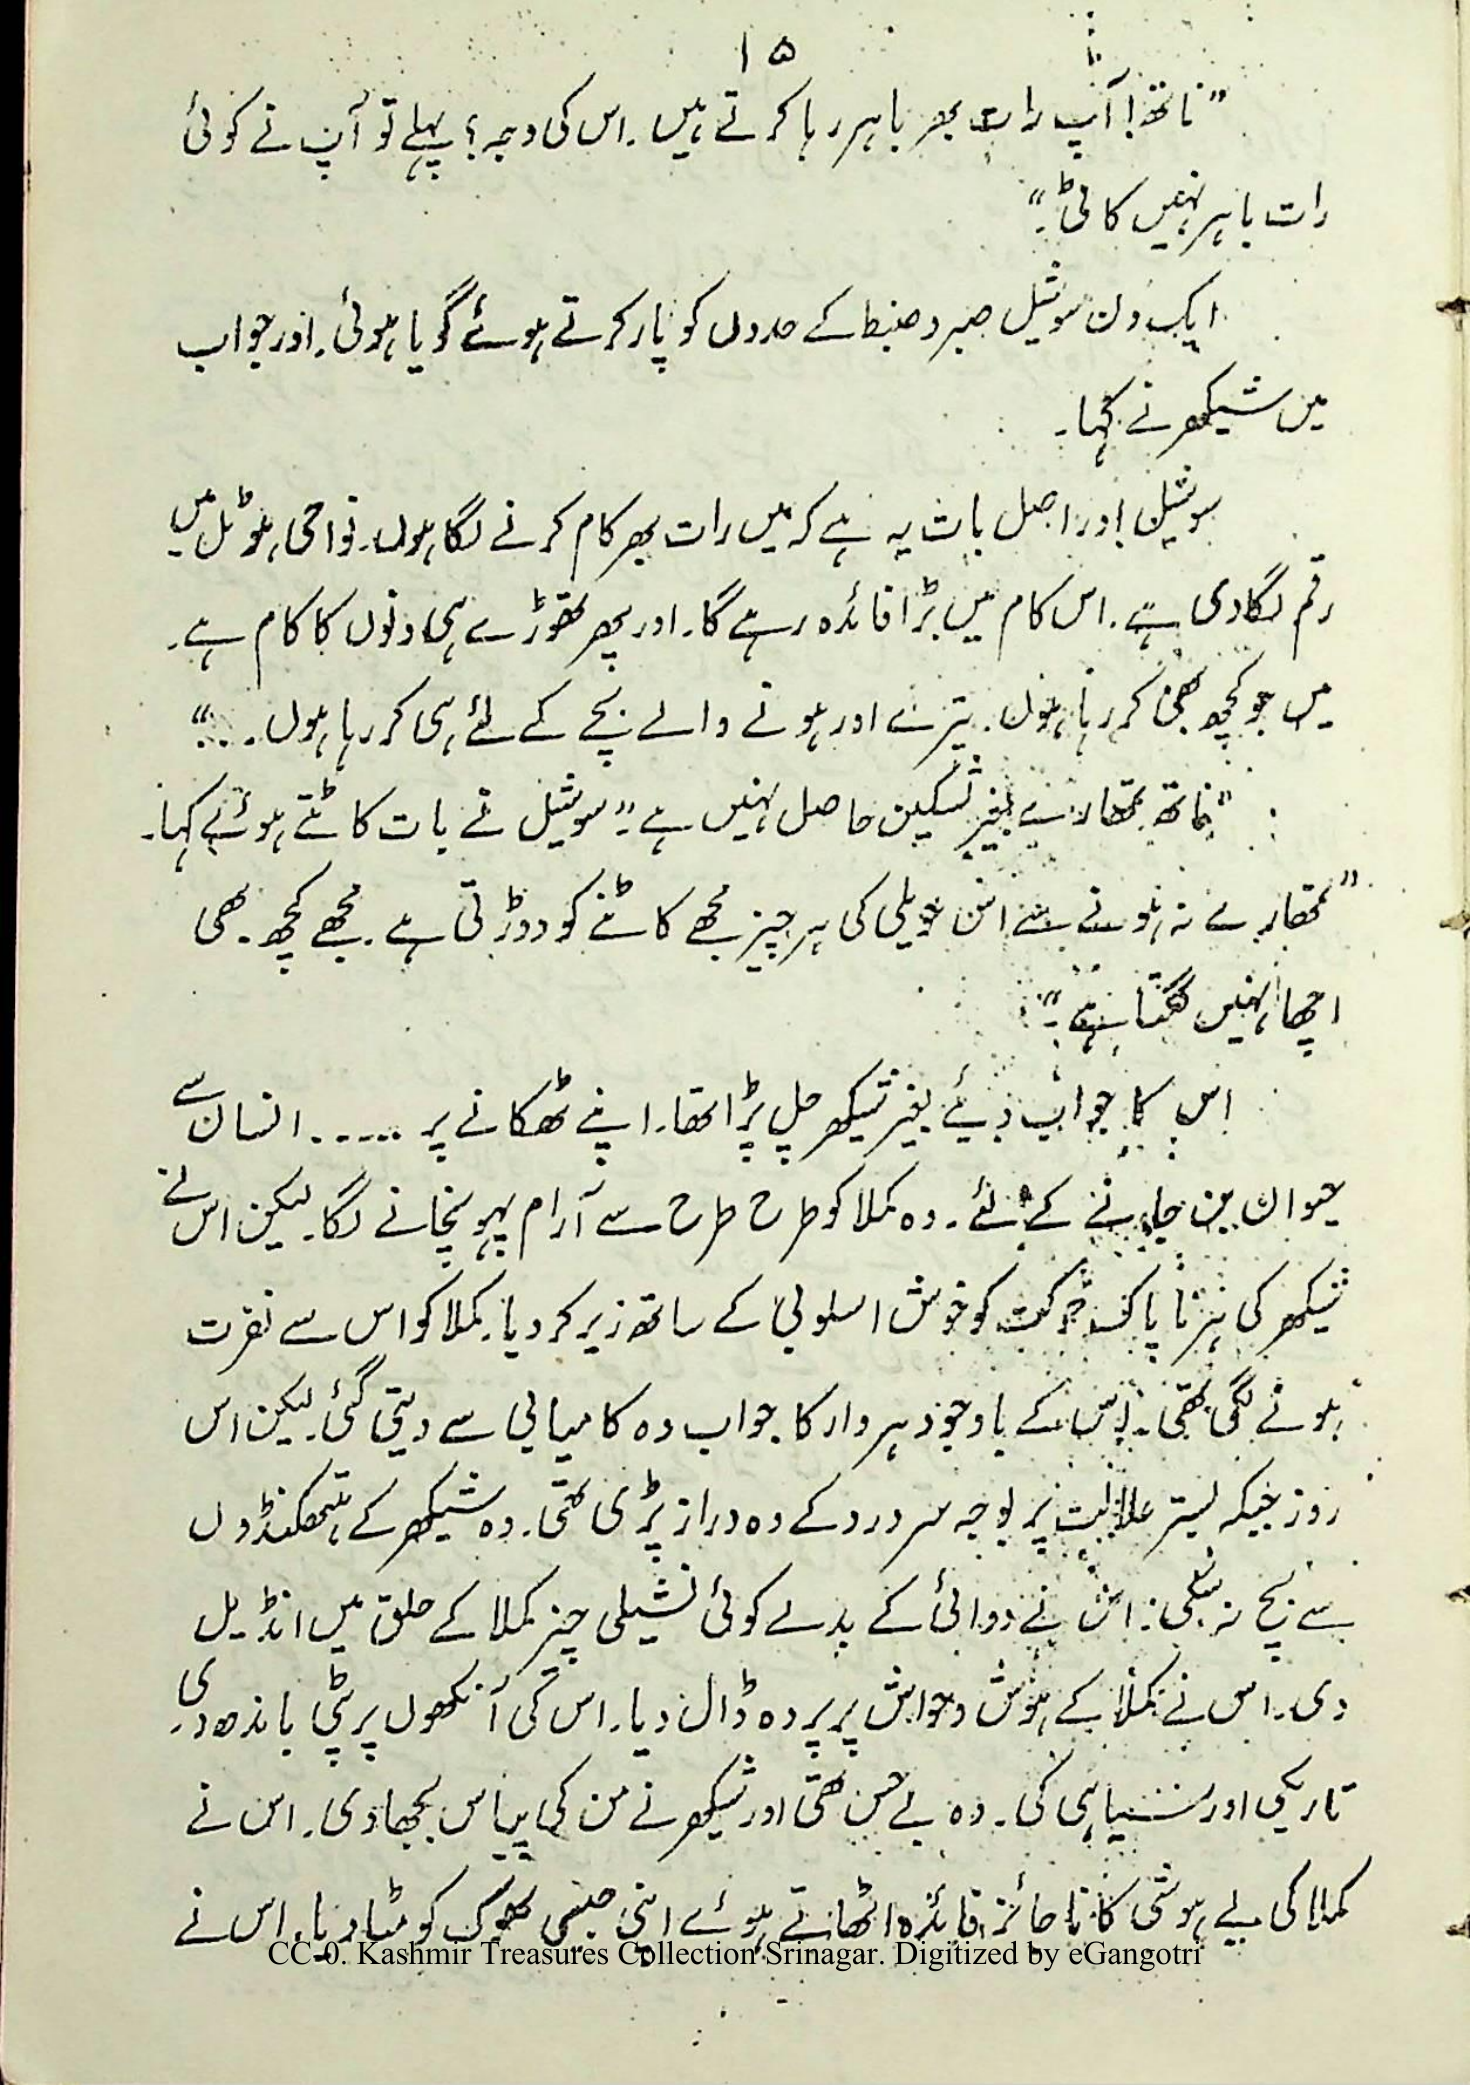 ۱۵
”ناتھ! آپ رات بھر باہر رہا کرتے ہیں۔ اس کی وجہ؟ پہلے تو آپ نے کوئی
رات باہر نہیں کاٹی۔“
ایک دن سوشیل صبر و ضبط کے حدوں کو پار کرتے ہوئے گویا ہوئی۔ اور جواب
میں شیکھر نے کہا۔
سوشیل! در اصل بات یہ ہے کہ میں رات بھر کام کرنے لگا ہوں۔ نواحی ہوٹل میں
رقم لگا دی ہے۔ اس کام میں بڑا فائدہ رہے گا۔ اور پھر تھوڑے ہی دنوں کا کام ہے۔
میں جو کچھ بھی کر رہا ہوں۔ تیرے اور ہونے والے بچے کے لئے ہی کر رہا ہوں۔۔۔“
”ناتھ تمھارے بغیر تسکین حاصل نہیں ہے۔“ سوشیل نے بات کاٹتے ہوئے کہا۔
”تمھارے نہ ہونے سے اس حویلی کی ہر چیز مجھے کاٹنے کو دوڑتی ہے۔ مجھے کچھ بھی
اچھا نہیں لگتا ہے۔“
اس کا جواب دیئے بغیر شیکھر چل پڑا تھا۔ اپنے ٹھکانے پر ۔۔۔۔۔ انسان سے
حیوان بن جانے کے لئے۔ وہ کملا کو طرح طرح سے آرام پہونچانے لگا۔ لیکن اس نے
شیکھر کی ہر ناپاک حرکت کو خوش اسلوبی کے ساتھ زیر کر دیا۔ کملا کو اس سے نفرت
ہونے لگی تھی۔ اس کے باوجود ہر وار کا جواب وہ کامیابی سے دیتی گئی۔ لیکن اس
روز جبکہ بستر علالت پر بوجہ سر درد کے وہ دراز پڑی تھی۔ وہ شیکھر کے ہتھکنڈوں
سے بچ نہ سکی۔ اس نے دوائی کے بدلے کوئی نشیلی چیز کملا کے حلق میں انڈیل
دی۔ اس نے کملا کے ہوش و حواس پر پردہ ڈال دیا۔ اس کی آنکھوں پر پٹی باندھ دی۔
تاریکی اور سیاہی کی۔ وہ بے حس تھی اور شیکھر نے من کی پیاس بجھا دی۔ اس نے
کملا کی بے ہوشی کا ناجائز فائدہ اٹھاتے ہوئے اپنی جنسی بھوک کو مٹا دیا۔ اس نے
CC-0. Kashmir Treasures Collection Srinagar. Digitized by eGangotri